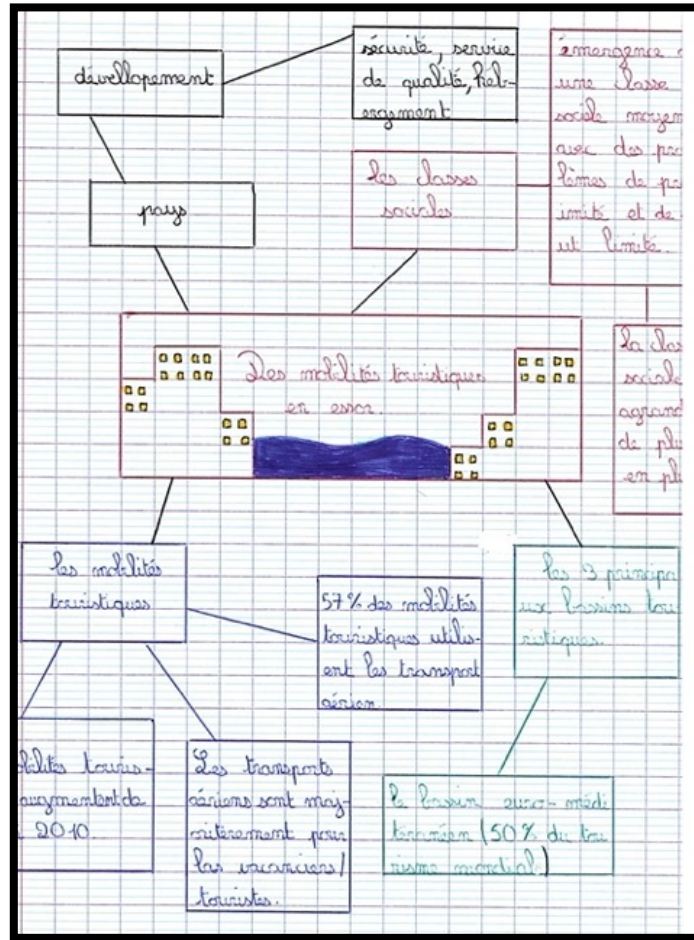 dévellopement
sécurité, servise
de qualité, héb-
ergement
émergence
une classe
sociale moyen
avec des pro
lèmes de pro
imité et de
ut limité.
les classes
sociales
pays
Des mobilités touristiques
en essor.
la clas
sociale
agrand
de plu
en plu
les mobilités
touristiques
57% des mobilités
touristiques utilis-
ent les transport
aérien.
les 3 principa
ux bassins tou
ristiques.
bilités touris-
augmentent de
2010.
Les transports
aériens sont maj-
oritèrement pour
les vacanciers/
touristes.
le bassin euro-médi
teranéen (50% du tou
risme mondial)